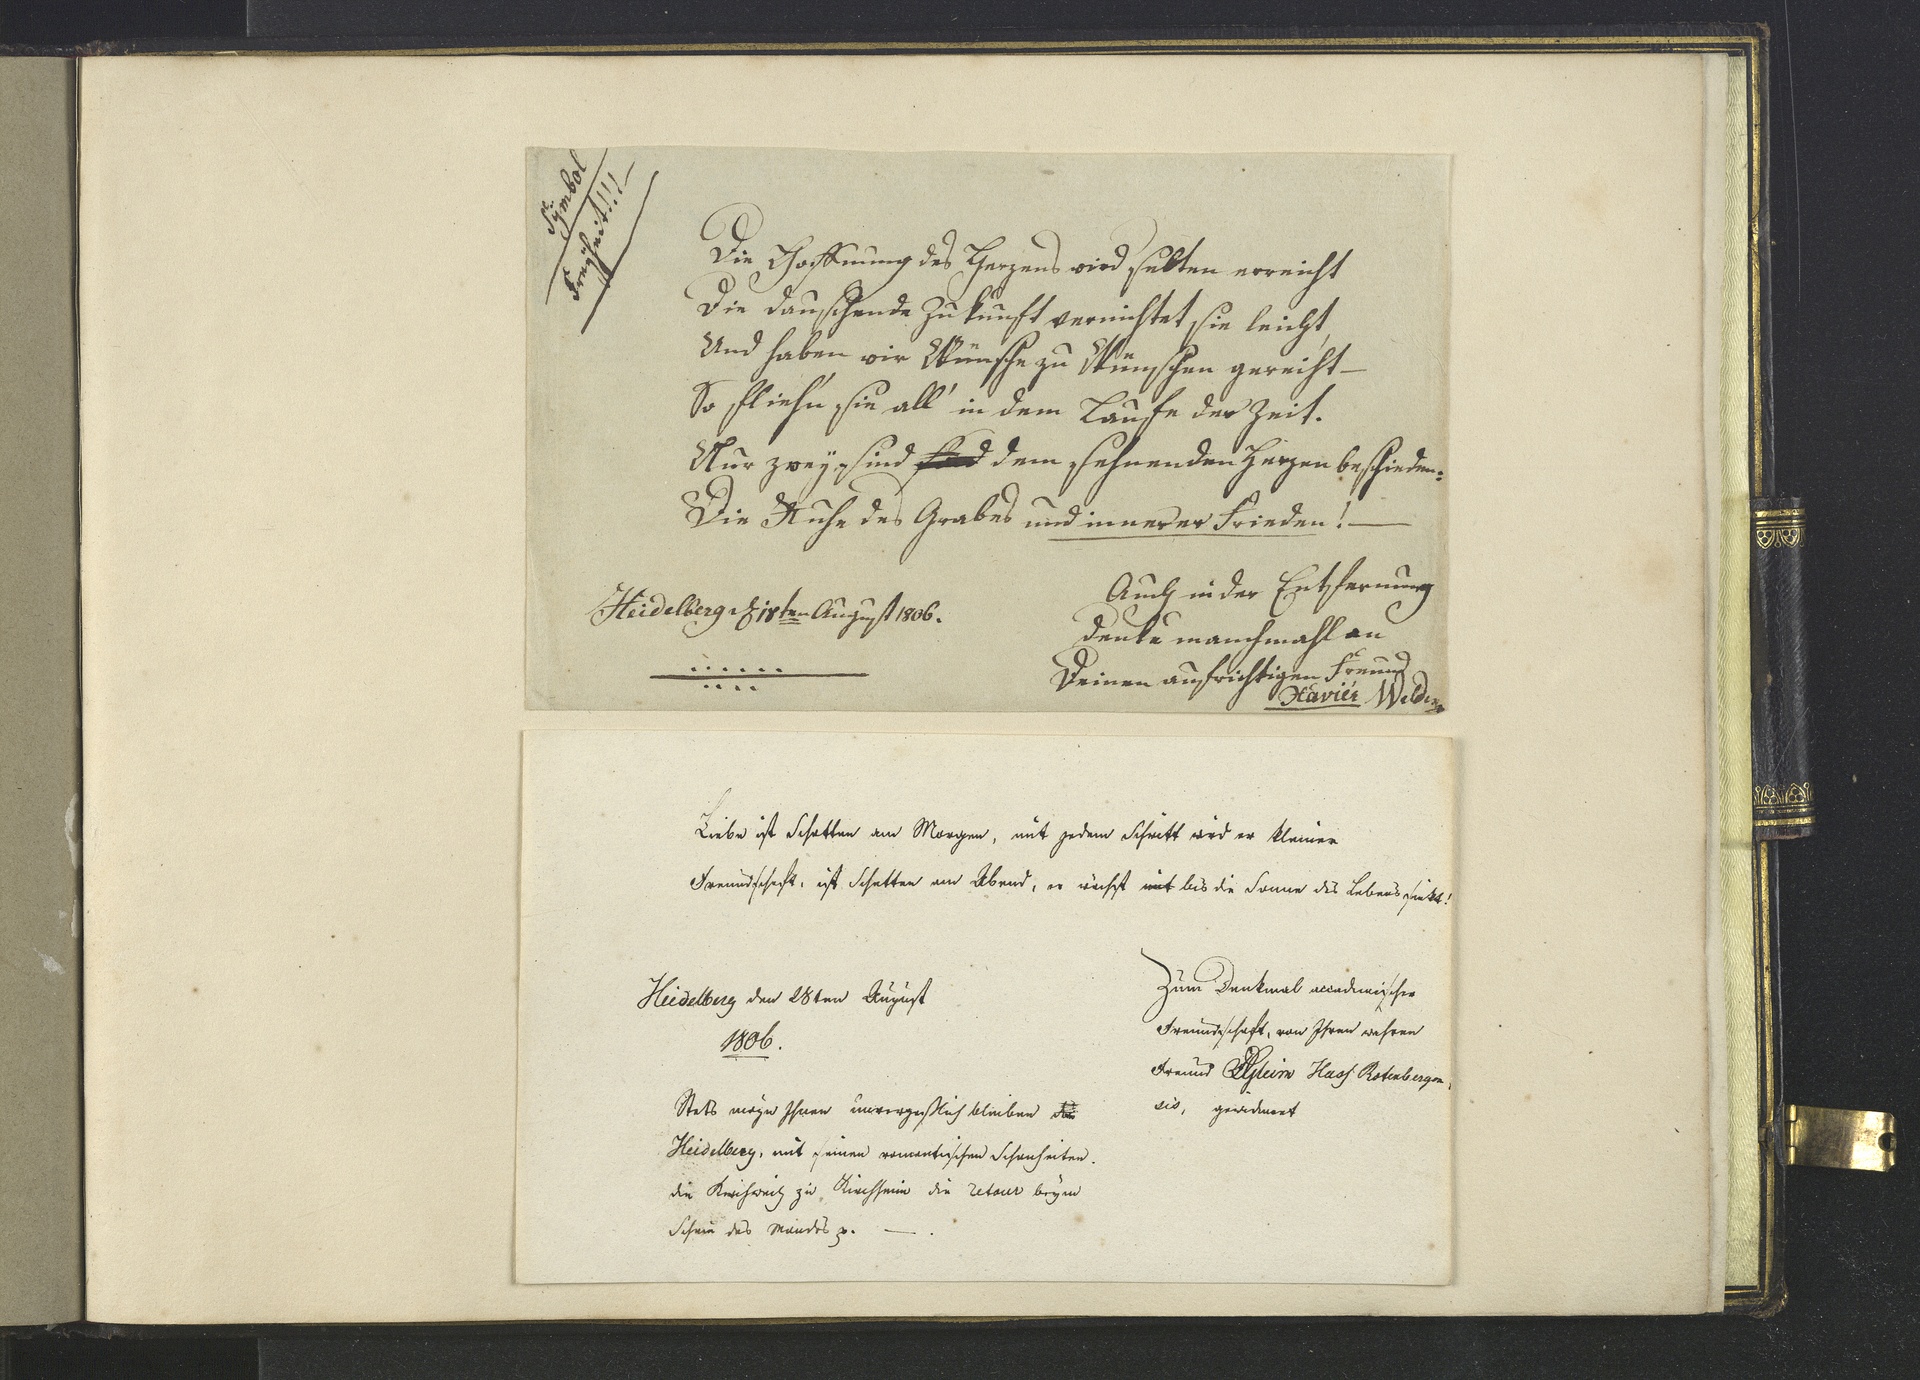 Sÿmbol
Freÿheit!!!
Die Hoffnung des Herzens wird selten erreicht
Die dauschende Zukunft vernichtet sie leicht,
Und haben wir Wünsche zu Wünschen gereiht—
So flieh'n sie all' in dem Laufe der Zeit.
Nur zweÿ sind dem sehnenden Herzen beschieden:
Die Ruhe des Grabes und innerer Frieden!—
Heidelberg d 18ten August 1806.
Auch in der Entfernung
denke manchmahl an
Deinen aufrichtigen Freund
Xaviér
Liebe ist Schatten am Morgen, mit jedem Schritt wird er kleiner
Freundschaft, ist Schatten am Abend, er wächst mit bis die Sonne des Lebens sinkt!
Heidelberg den 28ten August
1806.
Zum Denkmal accademischer
Freundschaft, von Ihren wahren
Freund Hass Rotenbergen,
sis, gewidmet
Stets möge Ihnen unvergeßlich bleiben
Heidelberg, mit seinen romantischen Schönheiten.
die Kirchweih zu Kirchheim die retour beym
Schein des Mondes —.